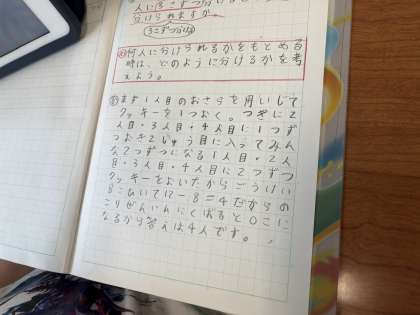 人に3こずつ分け
分けられますか。
(3こずつ分ける)
め 何人に分けられるかをもとめる
時は、どのように分けるかを考
えよう。
まず1人目のおさらを用いして
クッキーを1つおく。つぎに2
人目・3人目・4人目に1つず
つおき2じゅう目に入ってみん
な2つずつになる1人目・2人
目・3人目・4人目に2つずつ
クッキーをおいたからごうけい
8こひいて12-8=4だからの
こりぜんいんにくばると0こに
なるから答えは4人です。